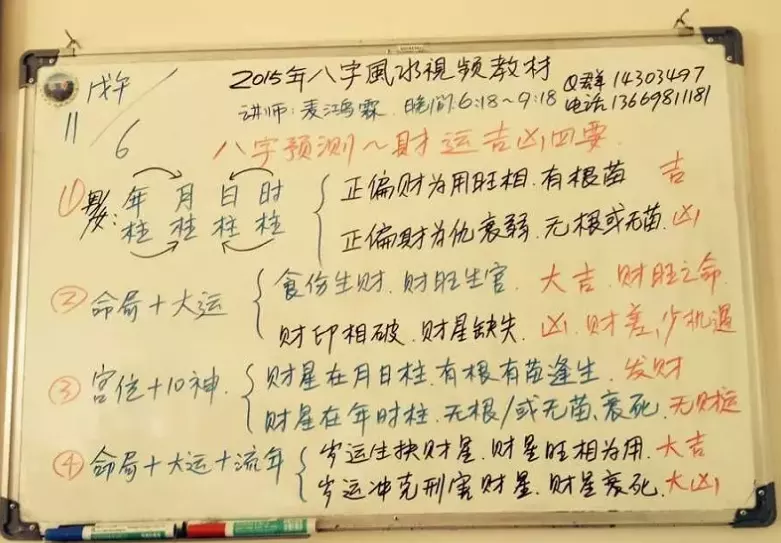 戊午
11/6
2015年八字風水視頻教材
Q群 14303497
讲师:麦鴻霖.晚间:6:18~9:18
电话:13669811181
八字预测~财运吉凶四要
①男女: 年柱 月柱 日柱 时柱
正偏财为用旺相.有根苗 吉
正偏财为仇衰弱.无根或无苗.凶
②命局+大运
食伤生财.财旺生官. 大吉.财旺之命.
财印相破.财星缺失. 凶.财差,少机遇
③宫位+10神.
财星在月日柱.有根有苗逢生. 发财
财星在年时柱.无根/或无苗、衰死.无财运
④命局+大运+流年
岁运生扶财星.财星旺相为用.大吉
岁运冲克刑害财星.财星衰死.大凶